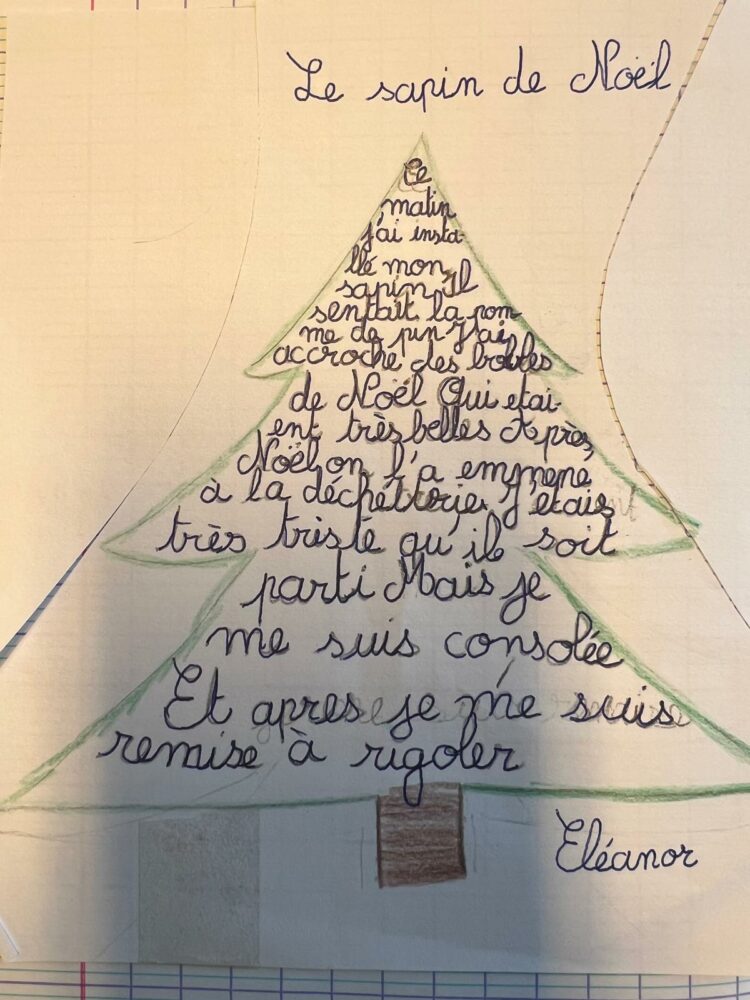 Le sapin de Noël
Ce
matin
j'ai insta-
llé mon
sapin Il
sentait la pom
me de pin J'ai
accroché des boules
de Noël Qui etai-
ent très belles Après
Noël on l'a emmené
à la déchetterie J'étais
très triste qu'il soit
parti Mais je
me suis consolée
Et apres je me suis
remise à rigoler
Eléanor